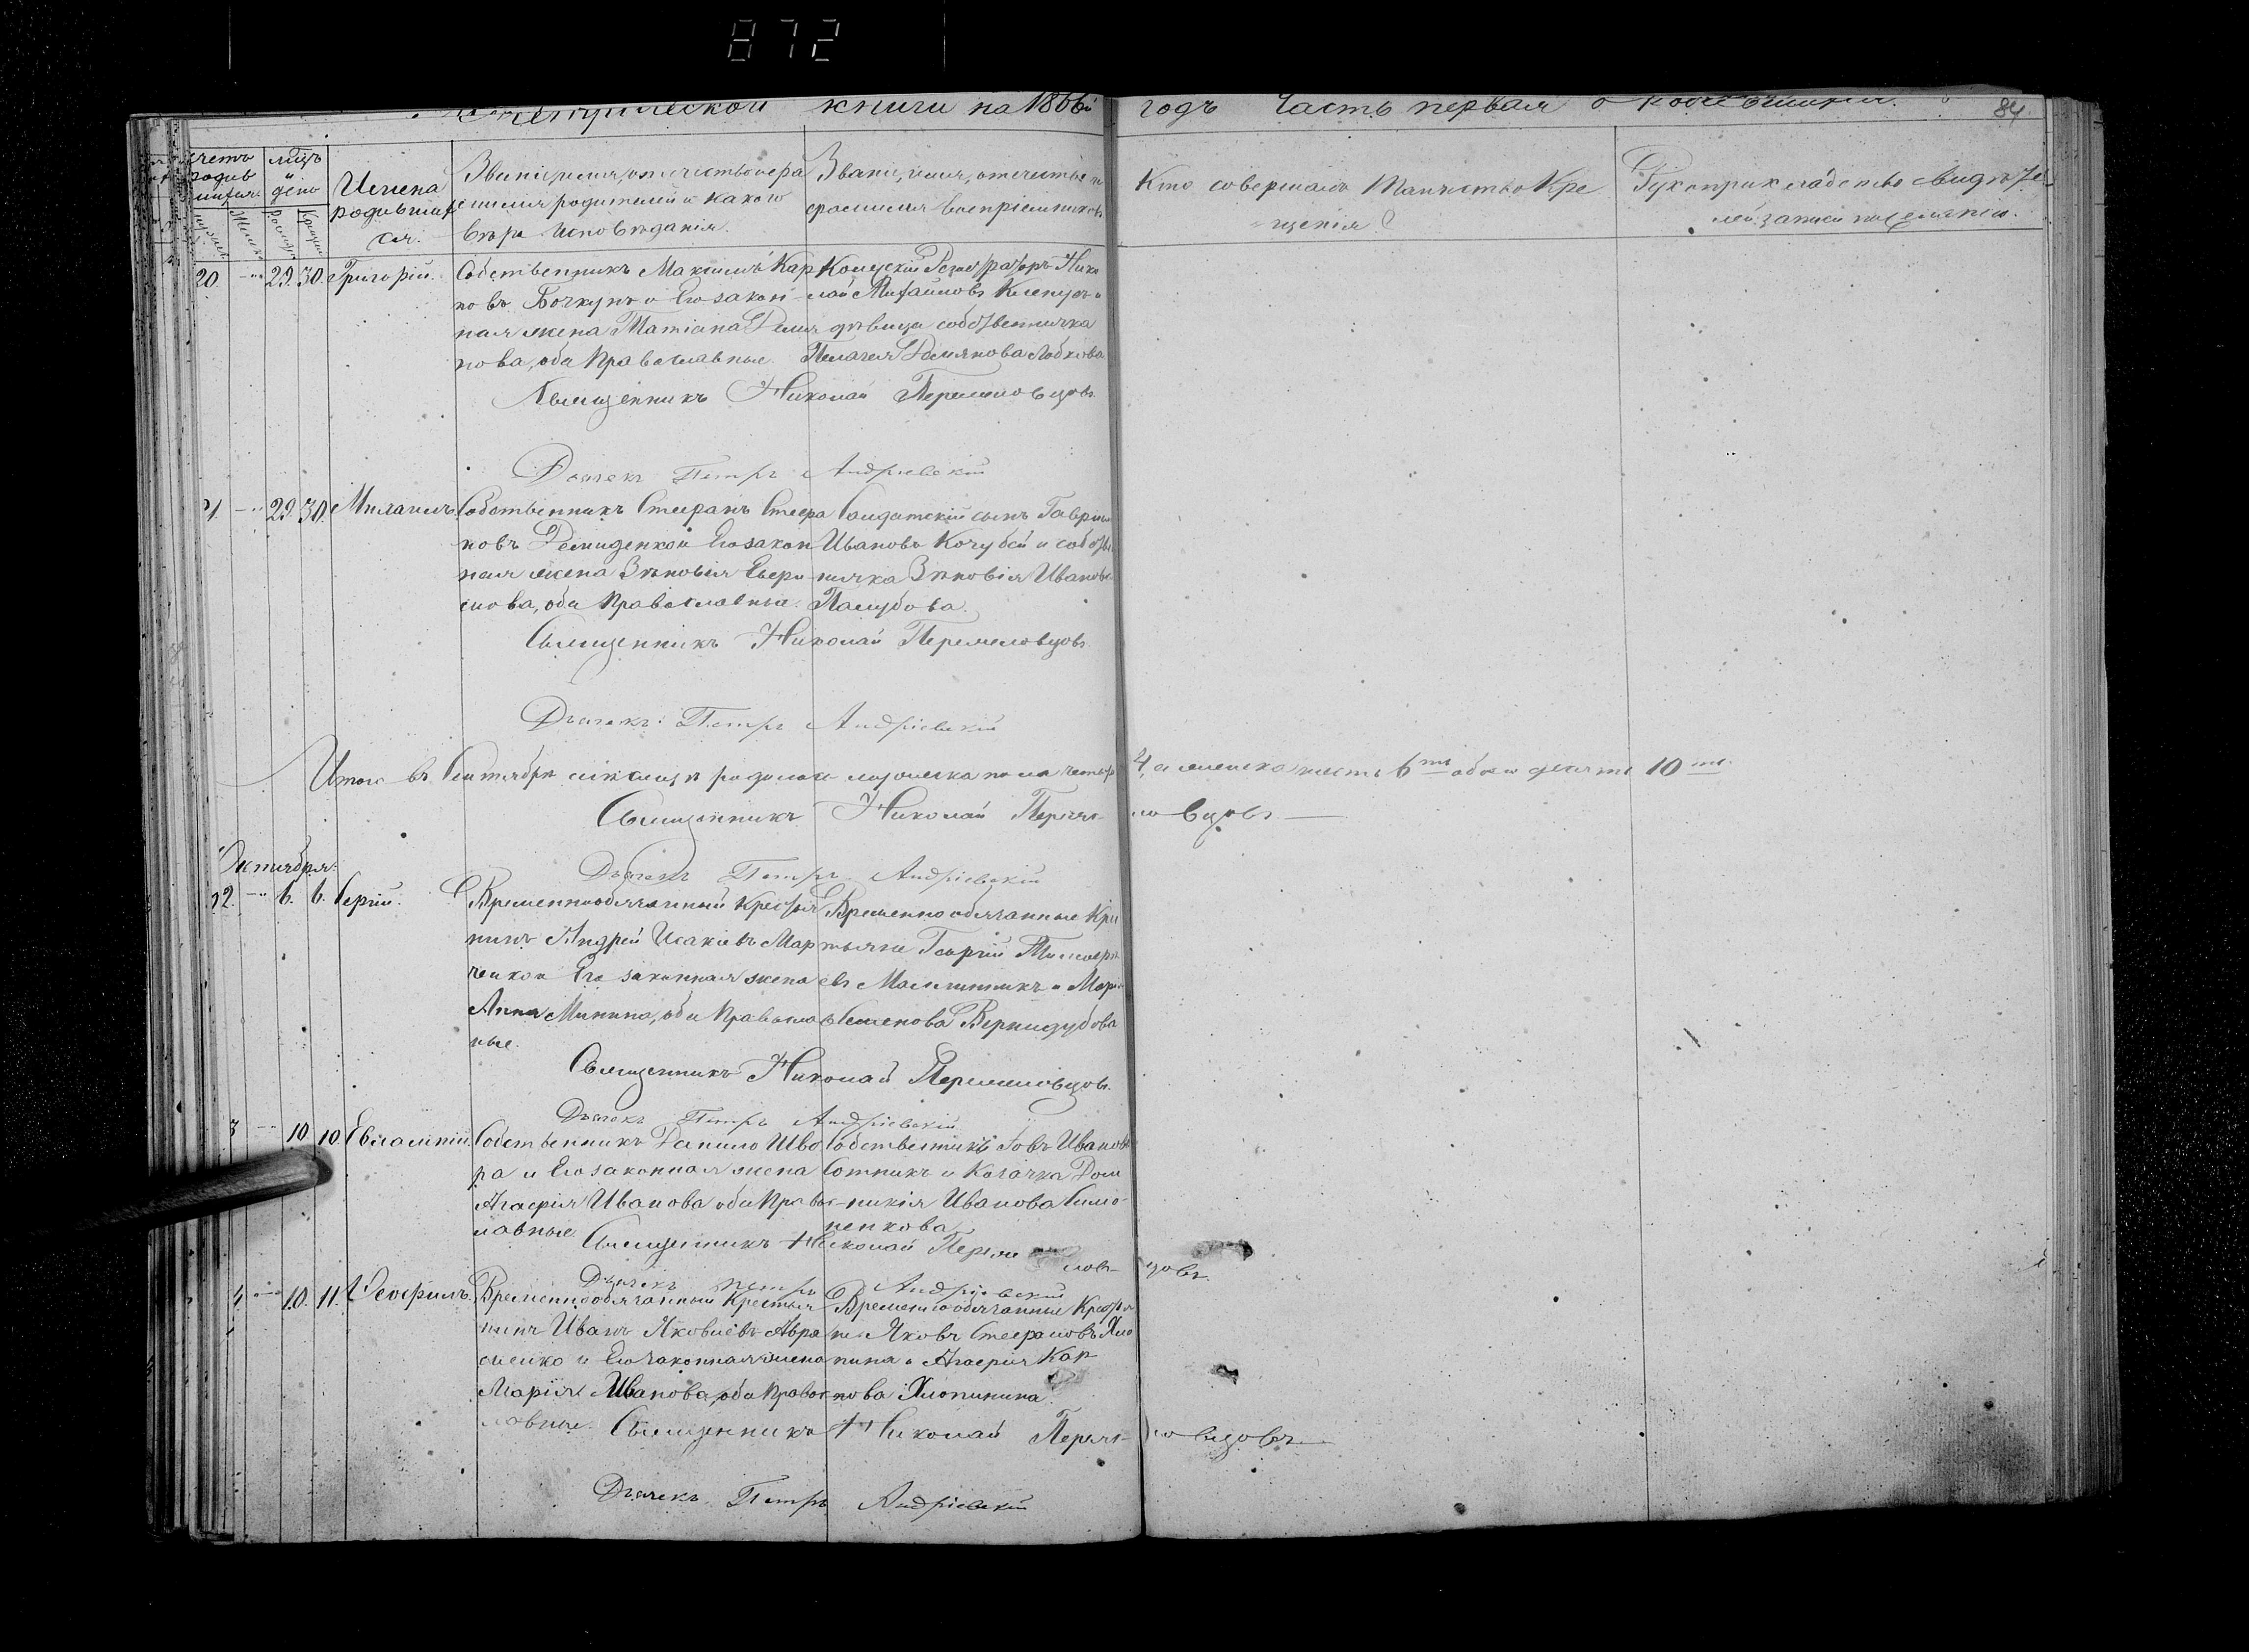 872
книги на 1866й годъ Часть первая о 84
Счетъ родившихся
мцъ и день
Имена родившихся.
Званіе, имя, отчество и фамилія родителей и какого вѣроисповѣданія.
Званіе, имя, отчество и фамилія воспріемниковъ
Кто совершалъ Таинство Крещенія
Рукоприкладство свидѣтелей записи по желанію.
20. 29. 30. Григорій.
Собственникъ Максимъ Кар
повъ Бочкунъ и Его закон
ная жена Татіана Демья
нова, оба православные.
Николай Михайловъ и
дѣвица собственничка
Пелагея Демьянова
Священникъ Николай Перемеловцовъ
Дьячекъ Петръ Андріевскій
21 29. 30. Михаилъ.
Собственникъ Стефанъ Стефа
новъ Демиденко и Его закон
ная жена Зѣновія Евфи
мова, оба православные.
Солдатскій сынъ
Ивановъ Кочубей и
ничка Зѣновія Иванова
Священникъ Николай Перемеловцовъ
Дьячекъ Петръ Андріевскій
Итого въ Сентябрѣ мѣсяцѣ родилось мужеска пола 4, а женска шесть 6ть обоего десять 10ть
Священникъ Николай Перемеловцовъ
Дьячекъ Петръ Андріевскій
Октября:
22 6. 6. Сергій.
Временнообязанный Крестья
нинъ Андрей Исакіевъ Мар
ченко и Его законная жена
Анна Минина, оба Православ
ные.
Временнообязанные Кре
стьяне Георгій Тимофе
евъ и Марія
Семенова Вернидубова
Священникъ Николай Перемеловцовъ.
Дьячекъ Петръ Андріевскій
3 10 10 Евлампій
Собственникъ Данило Шво
ра и Его законная жена
Агафія Иванова оба Право
славные
Собственникъ Іовъ Ивановъ
Сотникъ и Козачка Дом
никія Иванова Симо
ненкова
Священникъ Николай Перемеловцовъ
Дьячекъ Петръ Андріевскій
4 10. 11. Ѳеофилъ.
Временнообязанный Крестья
нинъ Иванъ Яковлевъ Авра
менко и Его законная жена
Марія Иванова, оба Право
славные.
Временнообязанные Крестья
не Яковъ Стефановъ Хло
пина и Агафія Кар
пова Хлопинина
Священникъ Николай Перемеловцовъ
Дьячекъ Петръ Андріевскій